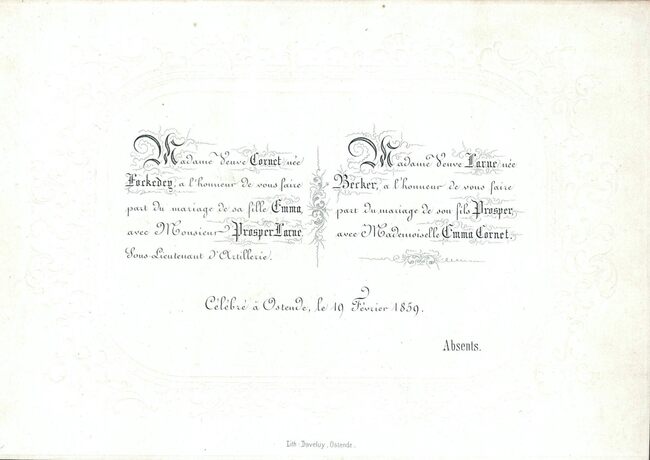 Madame Veuve Cornet née
Fockedey, a l'honneur de vous faire
part du mariage de sa fille Emma,
avec Monsieur Prosper Larue,
Sous-Lieutenant d'Artillerie.
Madame Veuve Larue née
Becker, a l'honneur de vous faire
part du mariage de son fils Prosper,
avec Mademoiselle Emma Cornet.
Célébré à Ostende, le 19 Février 1859.
Absents.
Lith. Daveluy, Ostende.